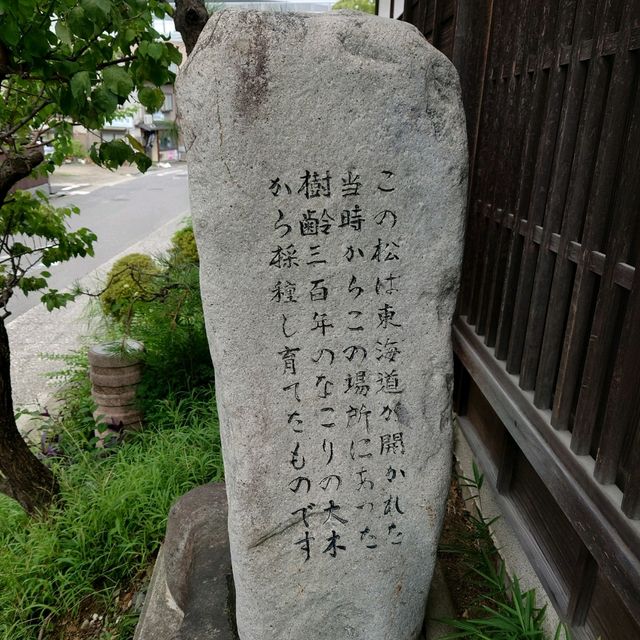 この松は東海道が開かれた
当時からこの場所にあった
樹齢三百年のなごりの大木
から採種し育てたものです